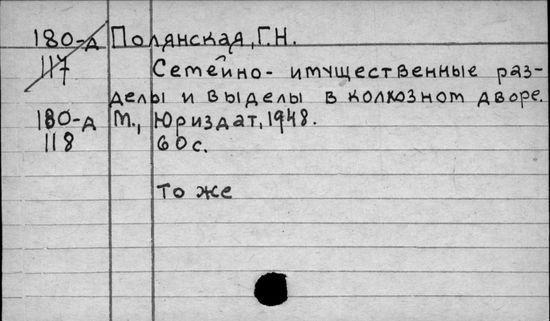 180-д Полянская, Г.Н.
117 Семейно-имущественные раз-
делы и выделы в колхозном дворе.
180-д М., Юриздат, 1948.
118 60 с.
То же